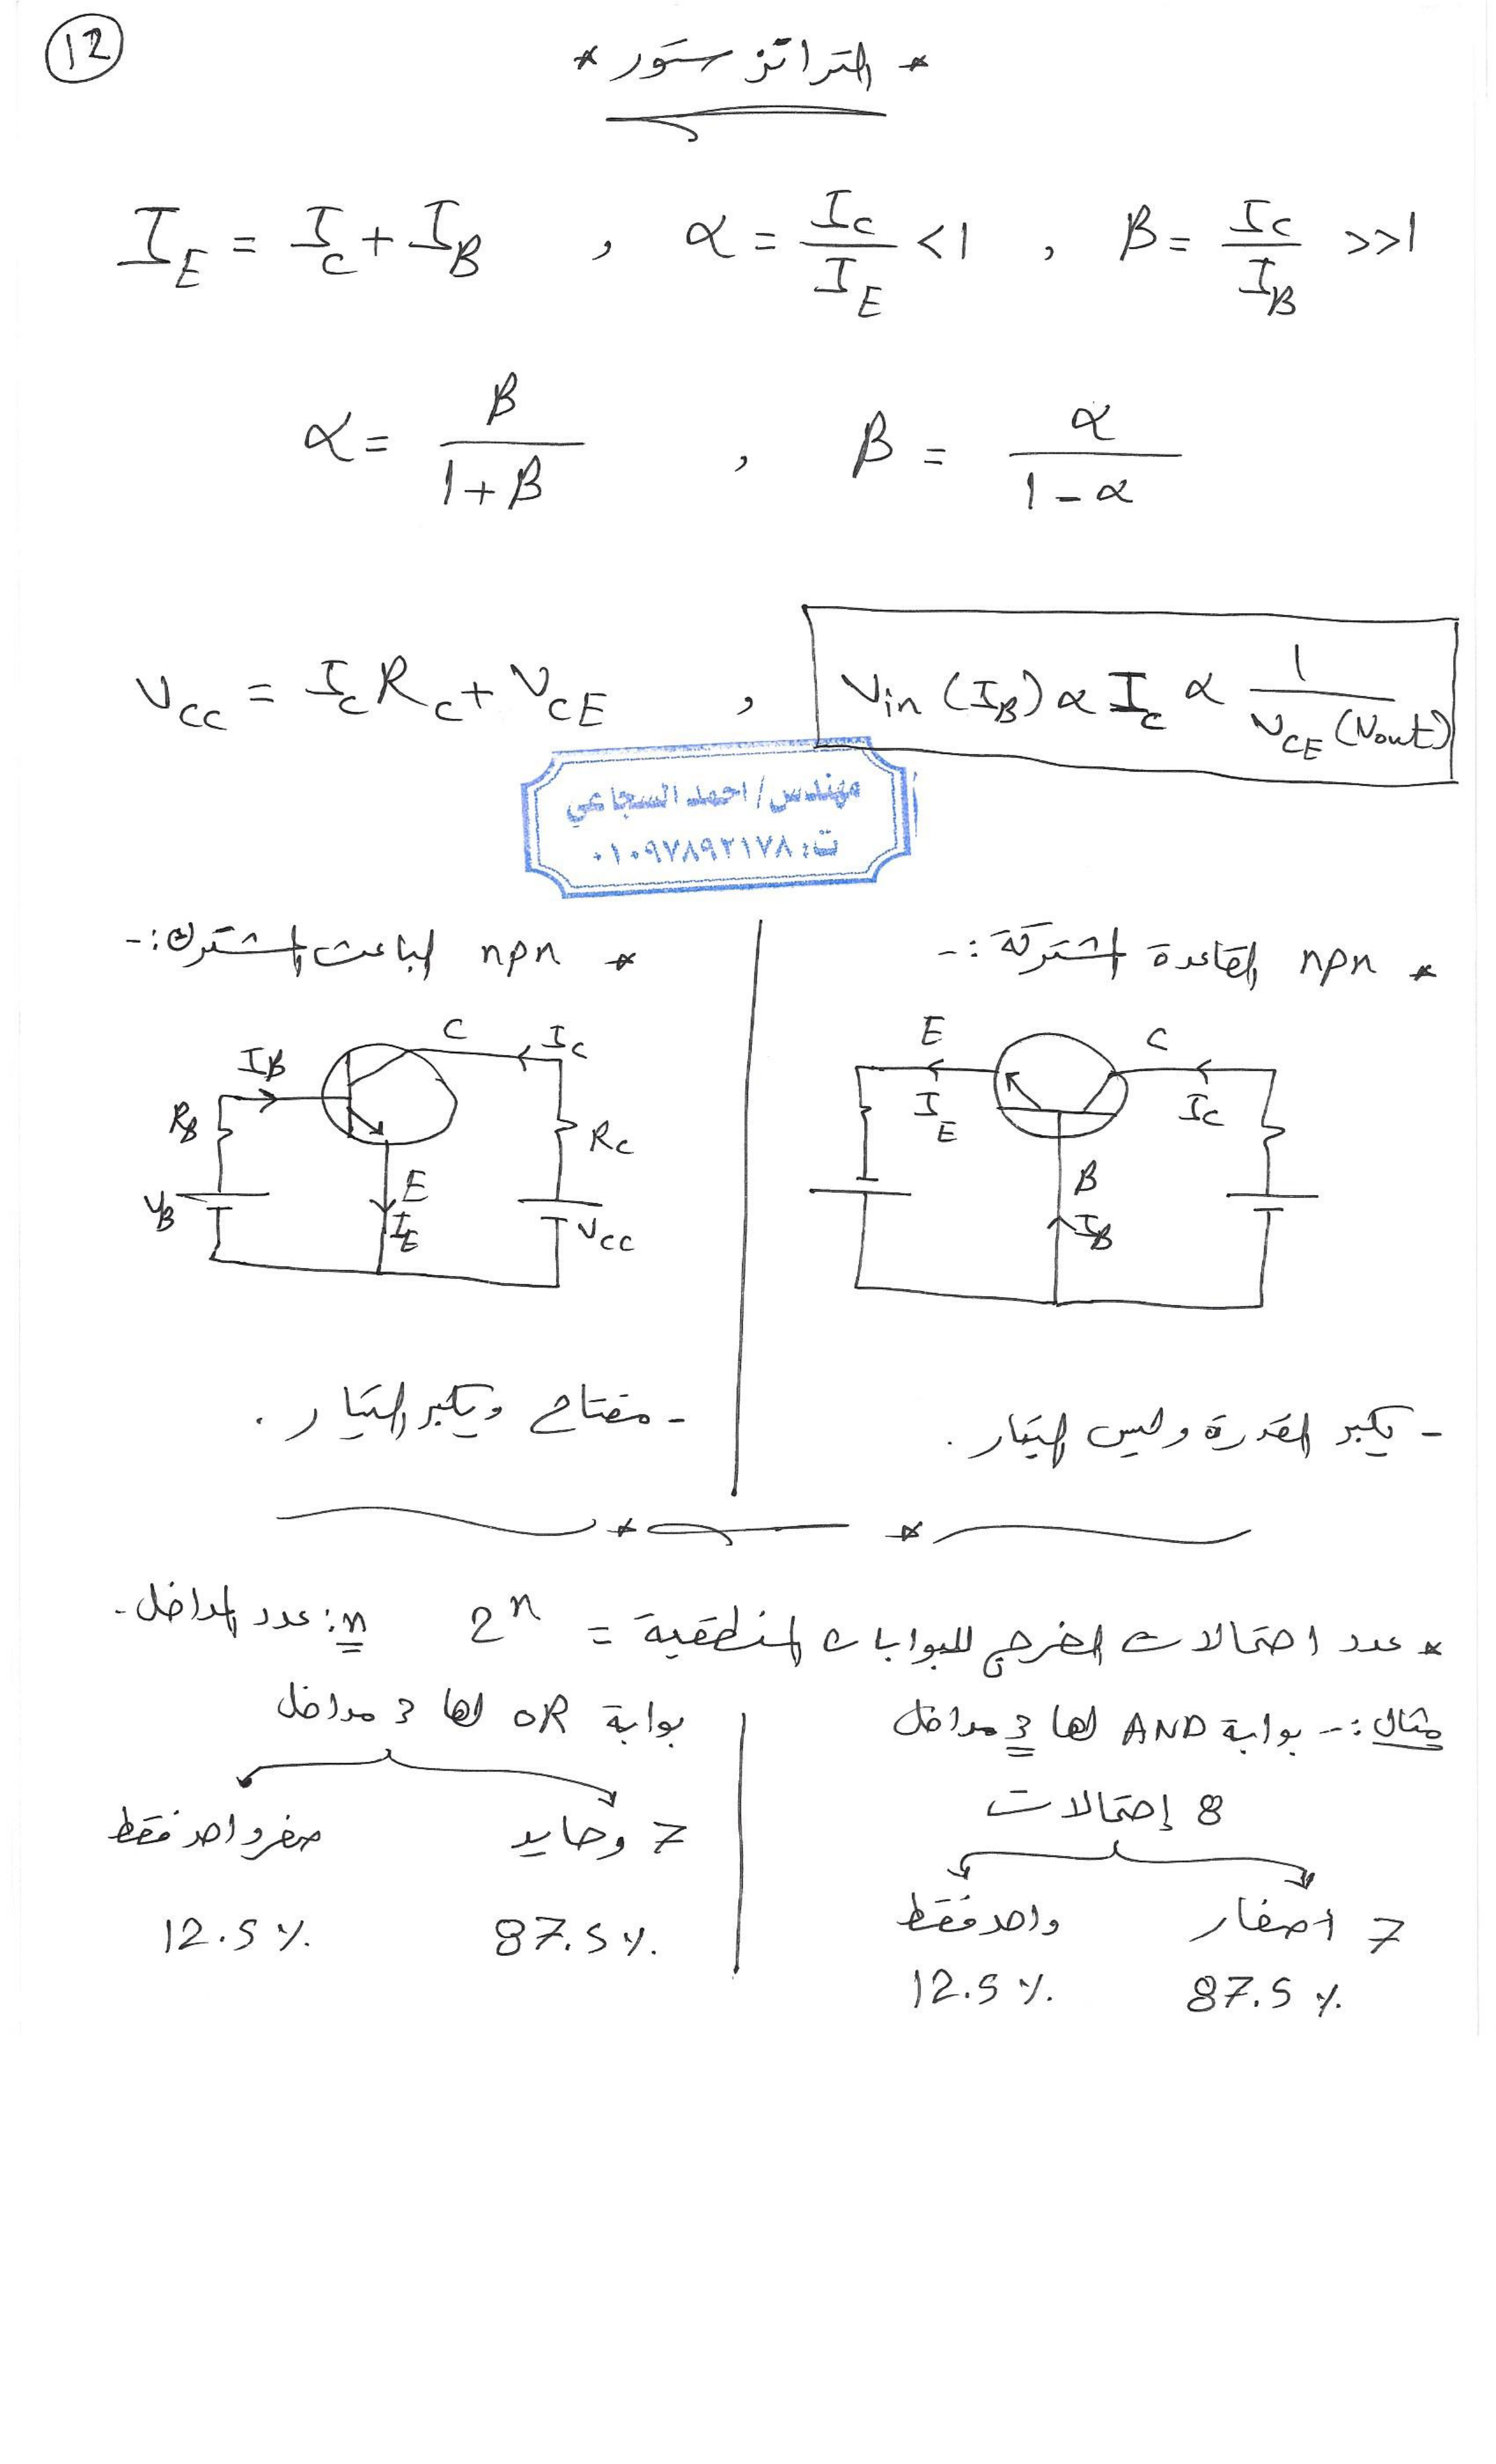 12
* الترانزستور *
I_E = I_C + I_B , α = I_C / I_E < 1 , β = I_C / I_B >> 1
α = β / (1 + β) , β = α / (1 - α)
V_CC = I_C R_C + V_CE , V_in (I_B) α I_C α 1 / V_CE (V_out)
مهندس/ احمد السجاعي
ت: ٠١٠٩٧٨٩٢١٧٨
* npn القاعدة المشتركة :-
E C
I_E I_C
B
I_B
- يكبر القدرة وليس التيار .
* npn الباعث المشترك :-
C I_C
I_B
R_B R_C
E
V_B I_E V_CC
- مفتاح ويكبر التيار .
* عدد احتمالات الخرج للبوابات المنطقية = 2^n n: عدد المداخل .
مثال :- بوابة AND لها 3 مداخل
8 إحتمالات
7 أصفار واحد فقط
87.5 % 12.5 %
بوابة OR لها 3 مداخل
7 وحايد صفر واحد فقط
87.5 % 12.5 %